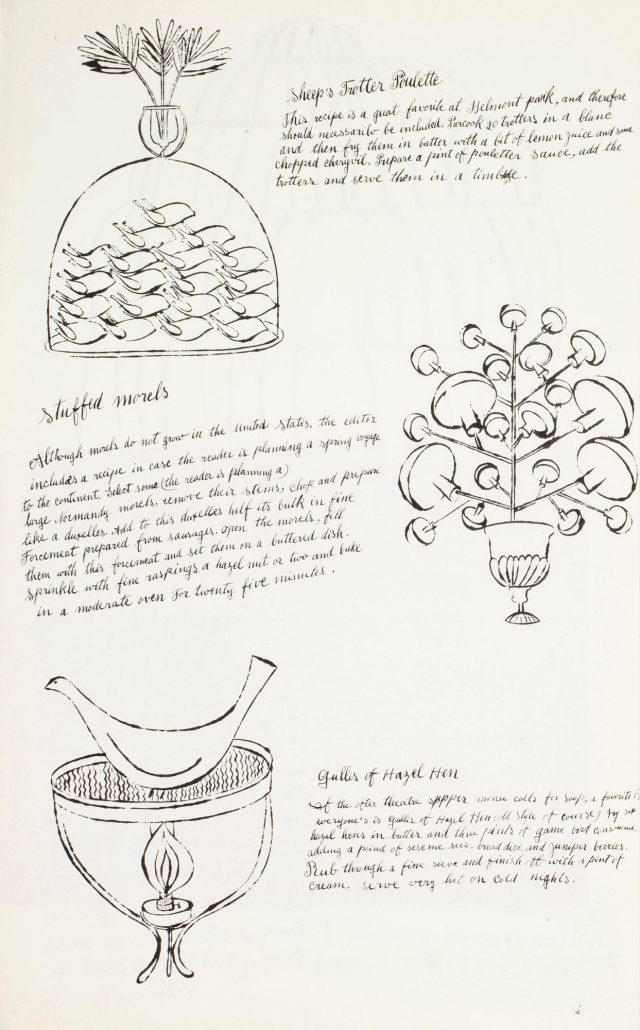 Sheep's Trotter Poulette
This recipe is a great favorite at Belmont park, and therefore
should necessarilo be included. Parcook 20 trotters in a blanc
and then fry them in batter with a bit of lemon juice and some
chopped chervil. Prepare a pint of pouletter sauce, add the
trotters and serve them in a
Stuffed morels
Although morels do not grow in the United States, the editor
includes a recipe in case the reader is planning a spring voyage
to the continent. Select some (the reader is planning a)
large Normandy morels, remove their stems, chop and prepare
like a duxelles. Add to this duxelles half its bulk in fine
Forcemeat prepared from sausages. Open the morels, fill
them with this forcemeat and set them on a buttered dish.
Sprinkle with fine raspings a hazel nut or two and bake
in a moderate oven for twenty five minutes.
Gullis of Hazel Hen
If the after theatre supper menu calls for soup, a favorite of
everyone's is Gullis of Hazel Hen (old style of course) Fry six
hazel hens in butter and three pints of game bird consomme
adding a poind of sereme seed, bread dice, and juniper berries.
Rub through a fine sieve and finish off with a pint of
cream, serve very hot on cold nights.